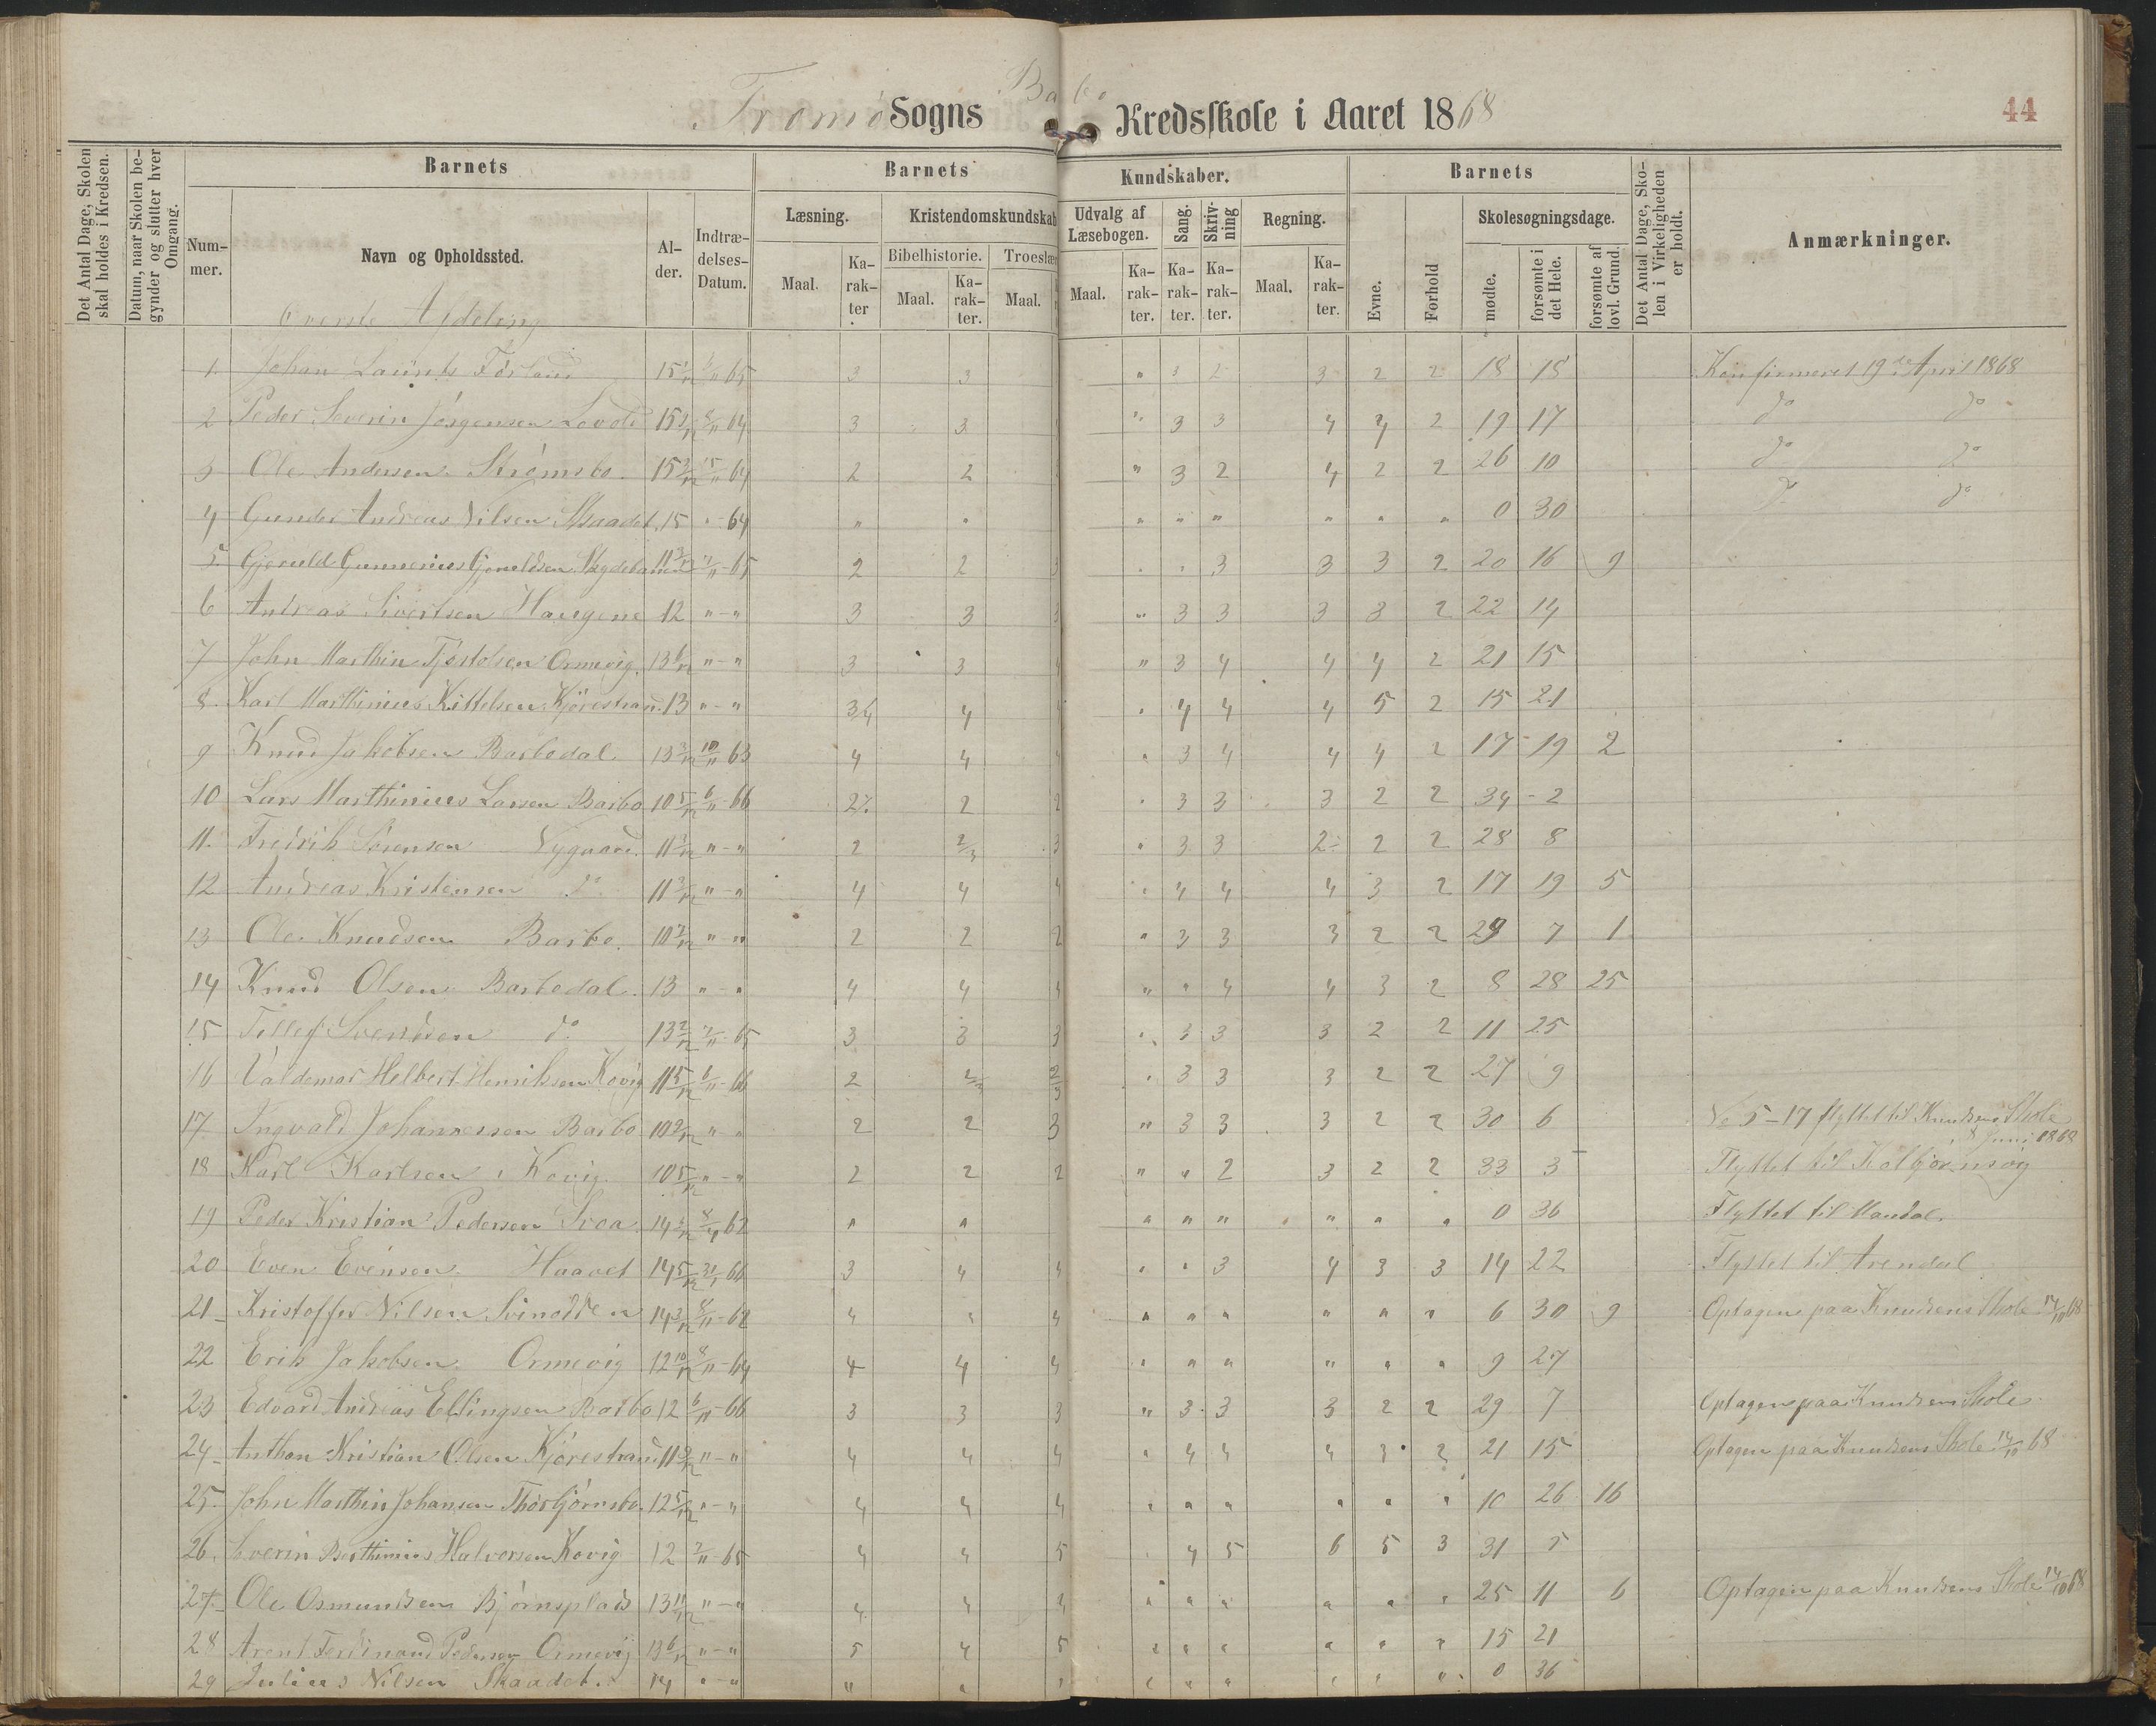 Barbo
Tromø Sogns Kredsskole i Aaret 1868
44
Det Antal Dage, Skolen skal holdes i Kredsen.
Datum, naar Skolen begynder og slutter hver Omgang.
Barnets
Nummer.
Navn og Opholdssted.
Alder.
Indtrædelses-Datum.
Barnets Kundskaber.
Læsning.
Maal.
Karakter
Kristendomskundskab
Bibelhistorie.
Maal.
Karakter.
Troeslære
Maal.
Udvalg af Læsebogen.
Maal.
Karakter.
Sang.
Karakter.
Skrivning
Karakter.
Regning.
Maal.
Karakter.
Barnets
Evne.
Forhold
Skolesøgningsdage.
mødte.
forsømte i det Hele.
forsømte af lovl. Grund.
Det Antal Dage, Skolen i Virkeligheden er holdt.
Anmærkninger.
Øverste Afdeling
1. Johan Laurits 65 3 3 " 3 2 3 2 2 18 18 Konfirmeret 19de April 1868
2 Peder Severin Jørgensen 64 3 3 " 3 3 4 4 2 19 17 do do
3 Ole Andersen Strømsbo. 64 2 2 " 3 2 4 2 2 26 10 do do
4 Gunder Andreas Nilsen Skaadet 15 " - 64 " " " " " " " " 0 30 do do
5. Gjeruld Gunnerius Gjeruldsen Skydebanen 65 2 2 3 " " 3 3 3 2 20 16 9
6 Andreas Sivertsen Haugene 12 " - " 3 3 3 " 3 3 3 3 2 22 14
7 John Marthin Tjøstolsen Ormevig. 13 6/12 " - " 3 3 4 " 3 4 4 4 2 21 15
8. Karl Marthinius Kittelsen Kjørestrand. 13 " - " 3/4 4 " 4 4 4 5 2 15 21
9 Knud Jakobsen Barbodal 13 3/12 10/11 63 4 4 " 3 4 4 4 2 17 19 2
10 Lars Marthinius Larsen Barbo 10 5/12 6/11 - 66 2 2 2 " 3 3 3 2 2 34 2
11. Fredrik Sørensen Nygaard. 11 3/12 " - " 2 2/3 3 " 3 3 2 2 2 28 8
12 Andreas Kristensen do 11 3/12 " - " 4 4 4 " 4 4 4 3 2 17 19 5
13 Ole Knudsen Barbo. 10 " - " 2 2 2 " 3 3 3 2 2 29 7 1
14 Knud Olsen Barbodal. 13 " - " 4 4 4 " " 4 4 3 2 8 28 25
15 Tellef Svendsen do. 13 2/12 7/11 - 65 3 3 3 " 3 3 3 2 2 11 25
16 Valdemar Helbert Henriksen Kovig 11 5/12 6/11 - 66 2 2/3 2/3 " 3 3 3 2 2 27 9
17. Ingvald Johannessen Barbo 10 " - " 2 2 3 " 3 3 3 2 2 30 6 No 5 - 17 flyttet til Knudsens Skole 8 Juni 1868
18 Karl Karlsen, Kovig. 10 5/12 " - " 2 2 2 " " 2 3 2 2 33 3 Flyttet til
19 Peder Kristian Pedersen 62 " " " " " " " " 0 36 Flyttet til Mandal.
20 Even Evensen Haavet 14 5/12 66 3 4 4 " " 3 4 3 3 14 22 Flyttet til Arendal
21 Kristoffer Nilsen Svinodden 14 3/12 8/11 - 62 4 " 4 " " " " " " 6 30 9 Optagen paa Knudsens Skole 14/10 68
22 Erik Jakobsen Ormevig 12 10/12 8/11 - 64 4 4 4 " " " " " " 9 27
23 Edvard Andreas Ellingsen Barbo 12 6/11 - 66 3 3 3 " 3 3 3 2 2 29 7 Optagen paa Knudsens Skole
24 Anthon Kristian Olsen Kjørestrand 11 " - " 4 4 4 " 4 4 4 3 2 21 15 Optagen paa Knudsens Skole 14/10 68
25. John Marthin Johansen Thorbjørnsbo. 12 5/12 " - " 4 4 4 " " " " " " 10 26 16
26. Severin Berthinius Halvorsen Kovig 12 7/11 - 65 4 4 5 4 5 6 5 3 31 5
27. Ole Osmundsen Bjørnsplads 13 11/12 " - " 4 4 4 " " " " " " 25 11 6 Optagen paa Knudsens Skole 14/10 68
28 Arent Ferdinand Pedersen Ormevig 13 6/12 " - " 5 4 5 " " " " " " 15 21
29 Julius Nilsen Skaadet. 14 " - " " " " " " " " " " 0 36